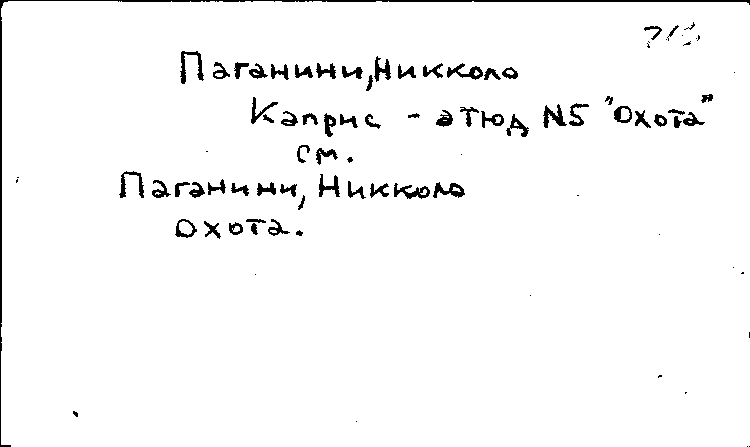 Паганини, Никколо
Каприс - этюд N5 "Охота"
см.
Паганини, Никколо
Охота.